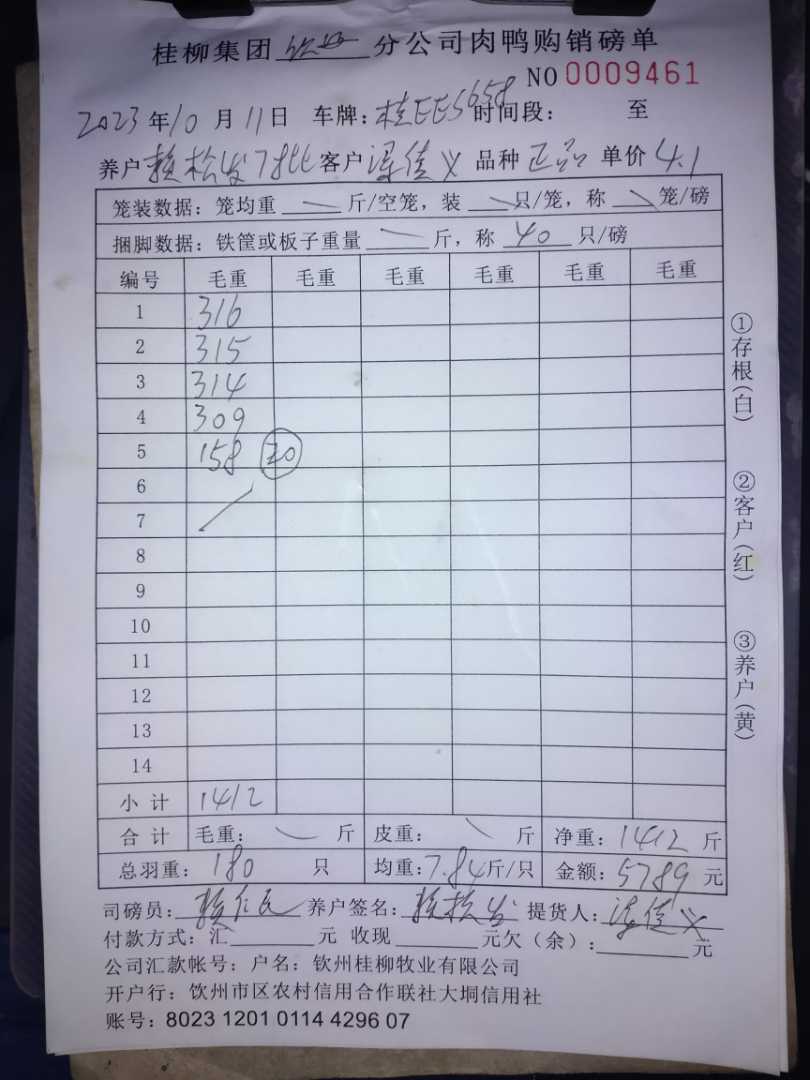 桂柳集团 钦州 分公司肉鸭购销磅单
NO 0009461
2023 年 10 月 11 日 车牌：桂EES658 时间段： 至
养户 赖松发7批 客户 梁信义 品种 正品 单价 4.1
笼装数据：笼均重 斤/空笼，装 只/笼，称 笼/磅
捆脚数据：铁筐或板子重量 斤，称 40 只/磅
编号 毛重 毛重 毛重 毛重 毛重 毛重
1 316
2 315
3 314
4 309
5 158 20
6
7
8
9
10
11
12
13
14
小 计 1412
合 计 毛重： 斤 皮重： 斤 净重：1412 斤
总羽重：180 只 均重：7.84 斤/只 金额：5789 元
司磅员： 养户签名：赖松发 提货人：梁信义
付款方式：汇 元 收现 元欠（余）： 元
公司汇款帐号：户名：钦州桂柳牧业有限公司
开户行：钦州市区农村信用合作联社大垌信用社
账号：8023 1201 0114 4296 07
①存根（白）
②客户（红）
③养户（黄）